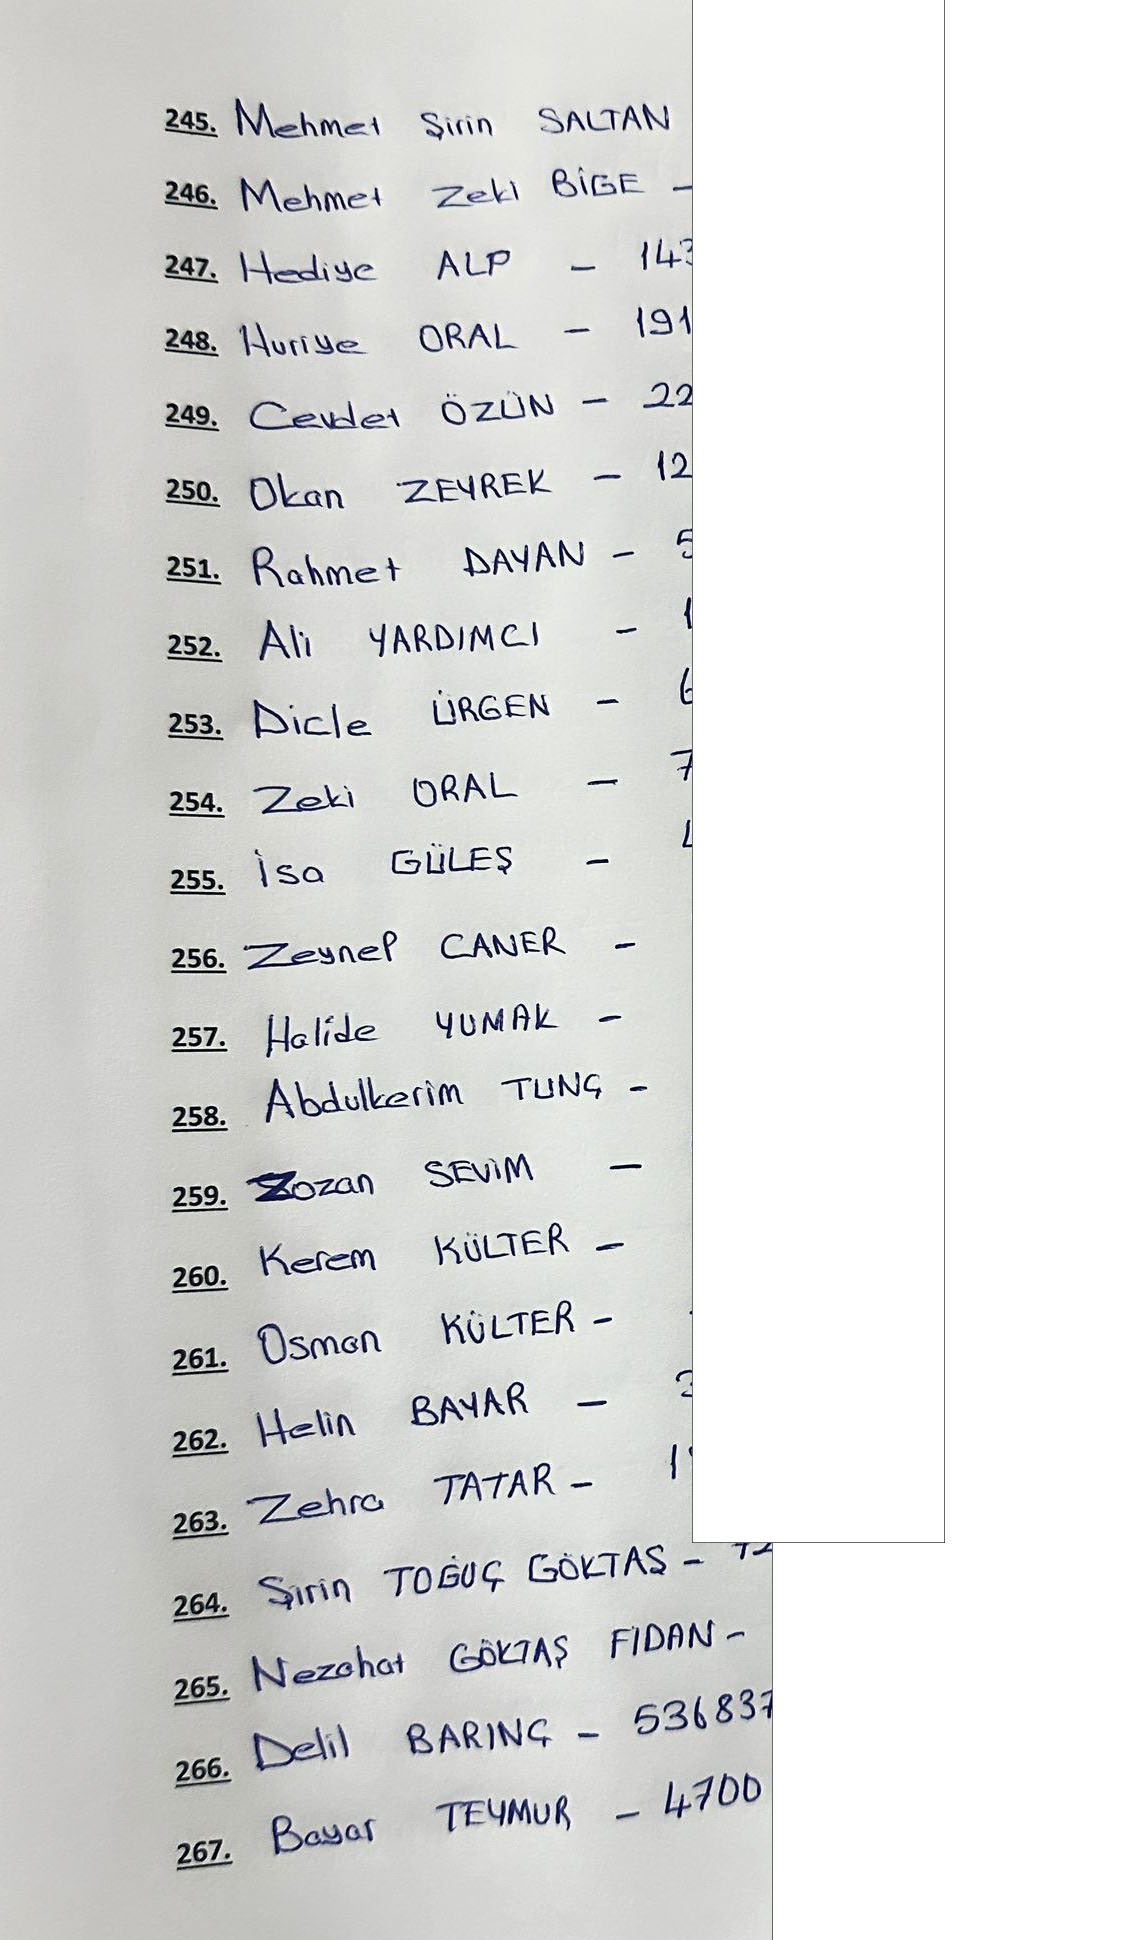 245. Mehmet Şirin SALTAN
246. Mehmet Zeki BİGE –
247. Hediye ALP – 143
248. Huriye ORAL – 191
249. Cevdet ÖZÜN – 22
250. Okan ZEYREK – 12
251. Rahmet DAYAN – 5
252. Ali YARDIMCI – 1
253. Dicle ÜRGEN – 6
254. Zeki ORAL – 7
255. İsa GÜLEŞ –
256. Zeynep CANER –
257. Halide YUMAK –
258. Abdulkerim TUNÇ –
259. Zozan SEVİM –
260. Kerem KÜLTER –
261. Osman KÜLTER –
262. Helin BAYAR –
263. Zehra TATAR – 1
264. Şirin TOĞUÇ GÖKTAŞ –
265. Nezahat GÖKTAŞ FİDAN –
266. Delil BARINÇ – 536837
267. Bayar TEYMUR – 4700